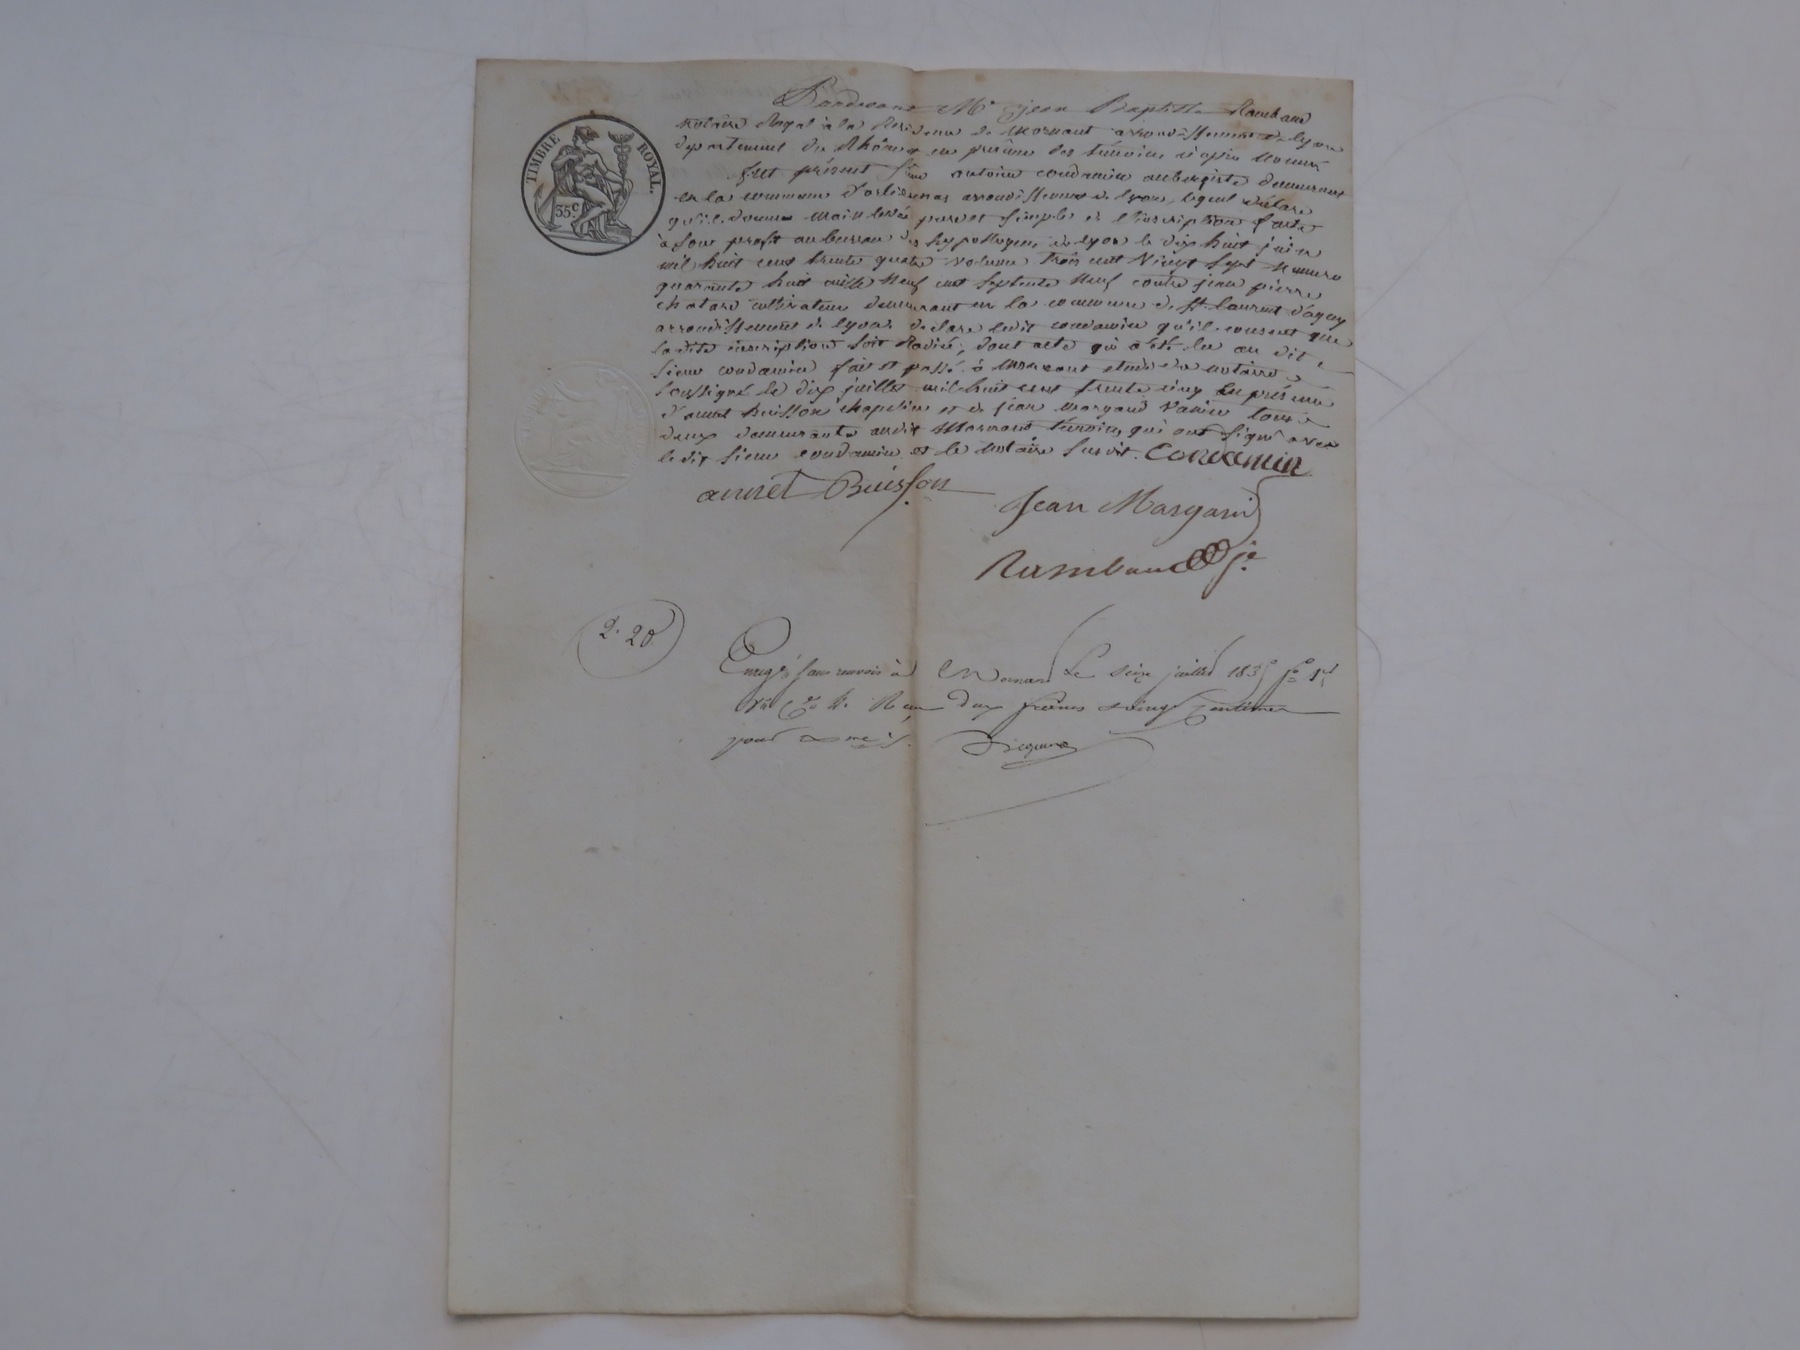 TIMBRE ROYAL.
35c
Pardevant Me jean Baptiste Rambaud
notaire Royal à la Résidence de Mornant arrondissement de lyon
departement du Rhône et en présence des témoins ci après nommés
fut présent sieur antoine condamin aubergiste demeurant
en la commune d'orliénas arrondissement de lyon, lequel déclare
qu'il donne main levée pure et simple de l'inscription faite
à son profit au bureau des hypotheques de lyon le dix huit juin
mil huit cent trente quatre volume trois cent vingt sept numero
quarante huit mille neuf cent septente neuf contre jean pierre
chatard cultivateur demeurant en la commune de st. laurent d'agny
arrondissement de lyon déclare ledit condamin qu'il consent que
la dite inscription soit Radiée, dont acte qui a été lu au dit
sieur condamin fait et passé à Mornant etude du notaire
soussigné le dix juillet mil huit cent trente cinq en présence
d'annet Buisson chapelier et de jean margand tous
deux demeurants audit Mornant témoins qui ont signé avec
le dit sieur condamin et le notaire susdit. Condamin
annet Buisson
Jean Margand
Rambaud je
2. 20
Enregé sans renvoi à Mornant Le seize juillet 1835 fo
Reçu deux francs vingt centimes
pour